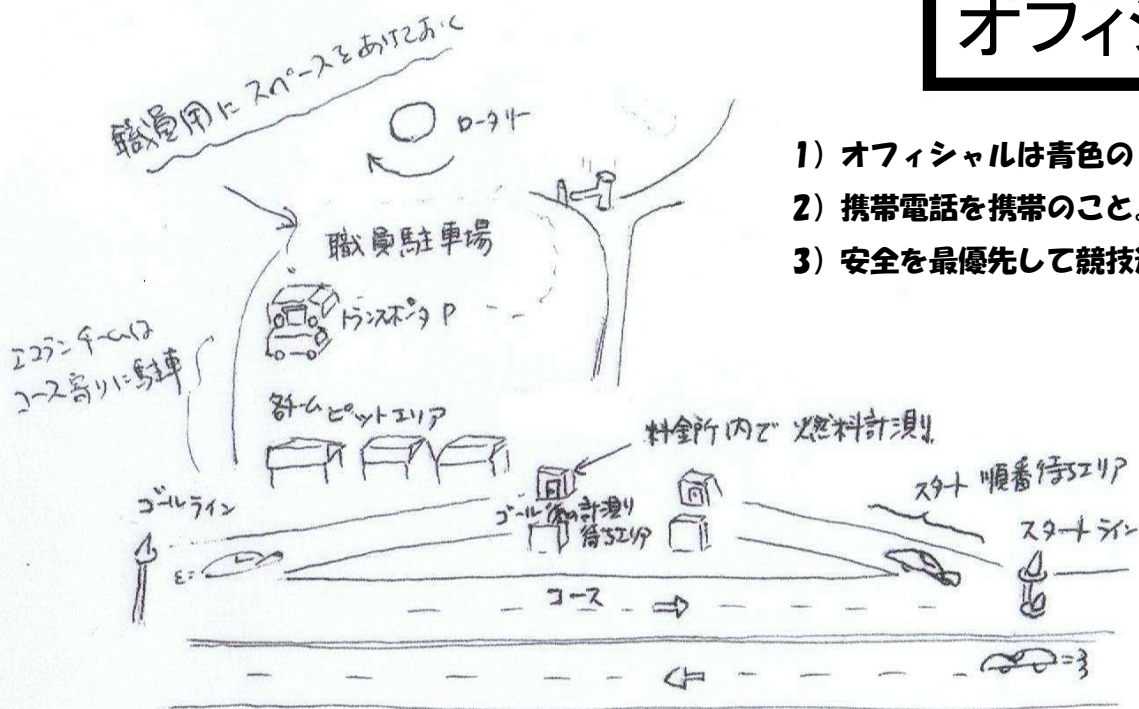 オフィシ
1）オフィシャルは青色の
2）携帯電話を携帯のこと。
3）安全を最優先して競技
職員用に スペースをあけておく
ロータリー
職員駐車場
トランスポンタ P
エコランチームは
コース寄りに駐車
各チームピットエリア
料金所内で 燃料計測
ゴールライン
ゴール後の計測
待ちエリア
スタート 順番待ちエリア
スタートライン
コース